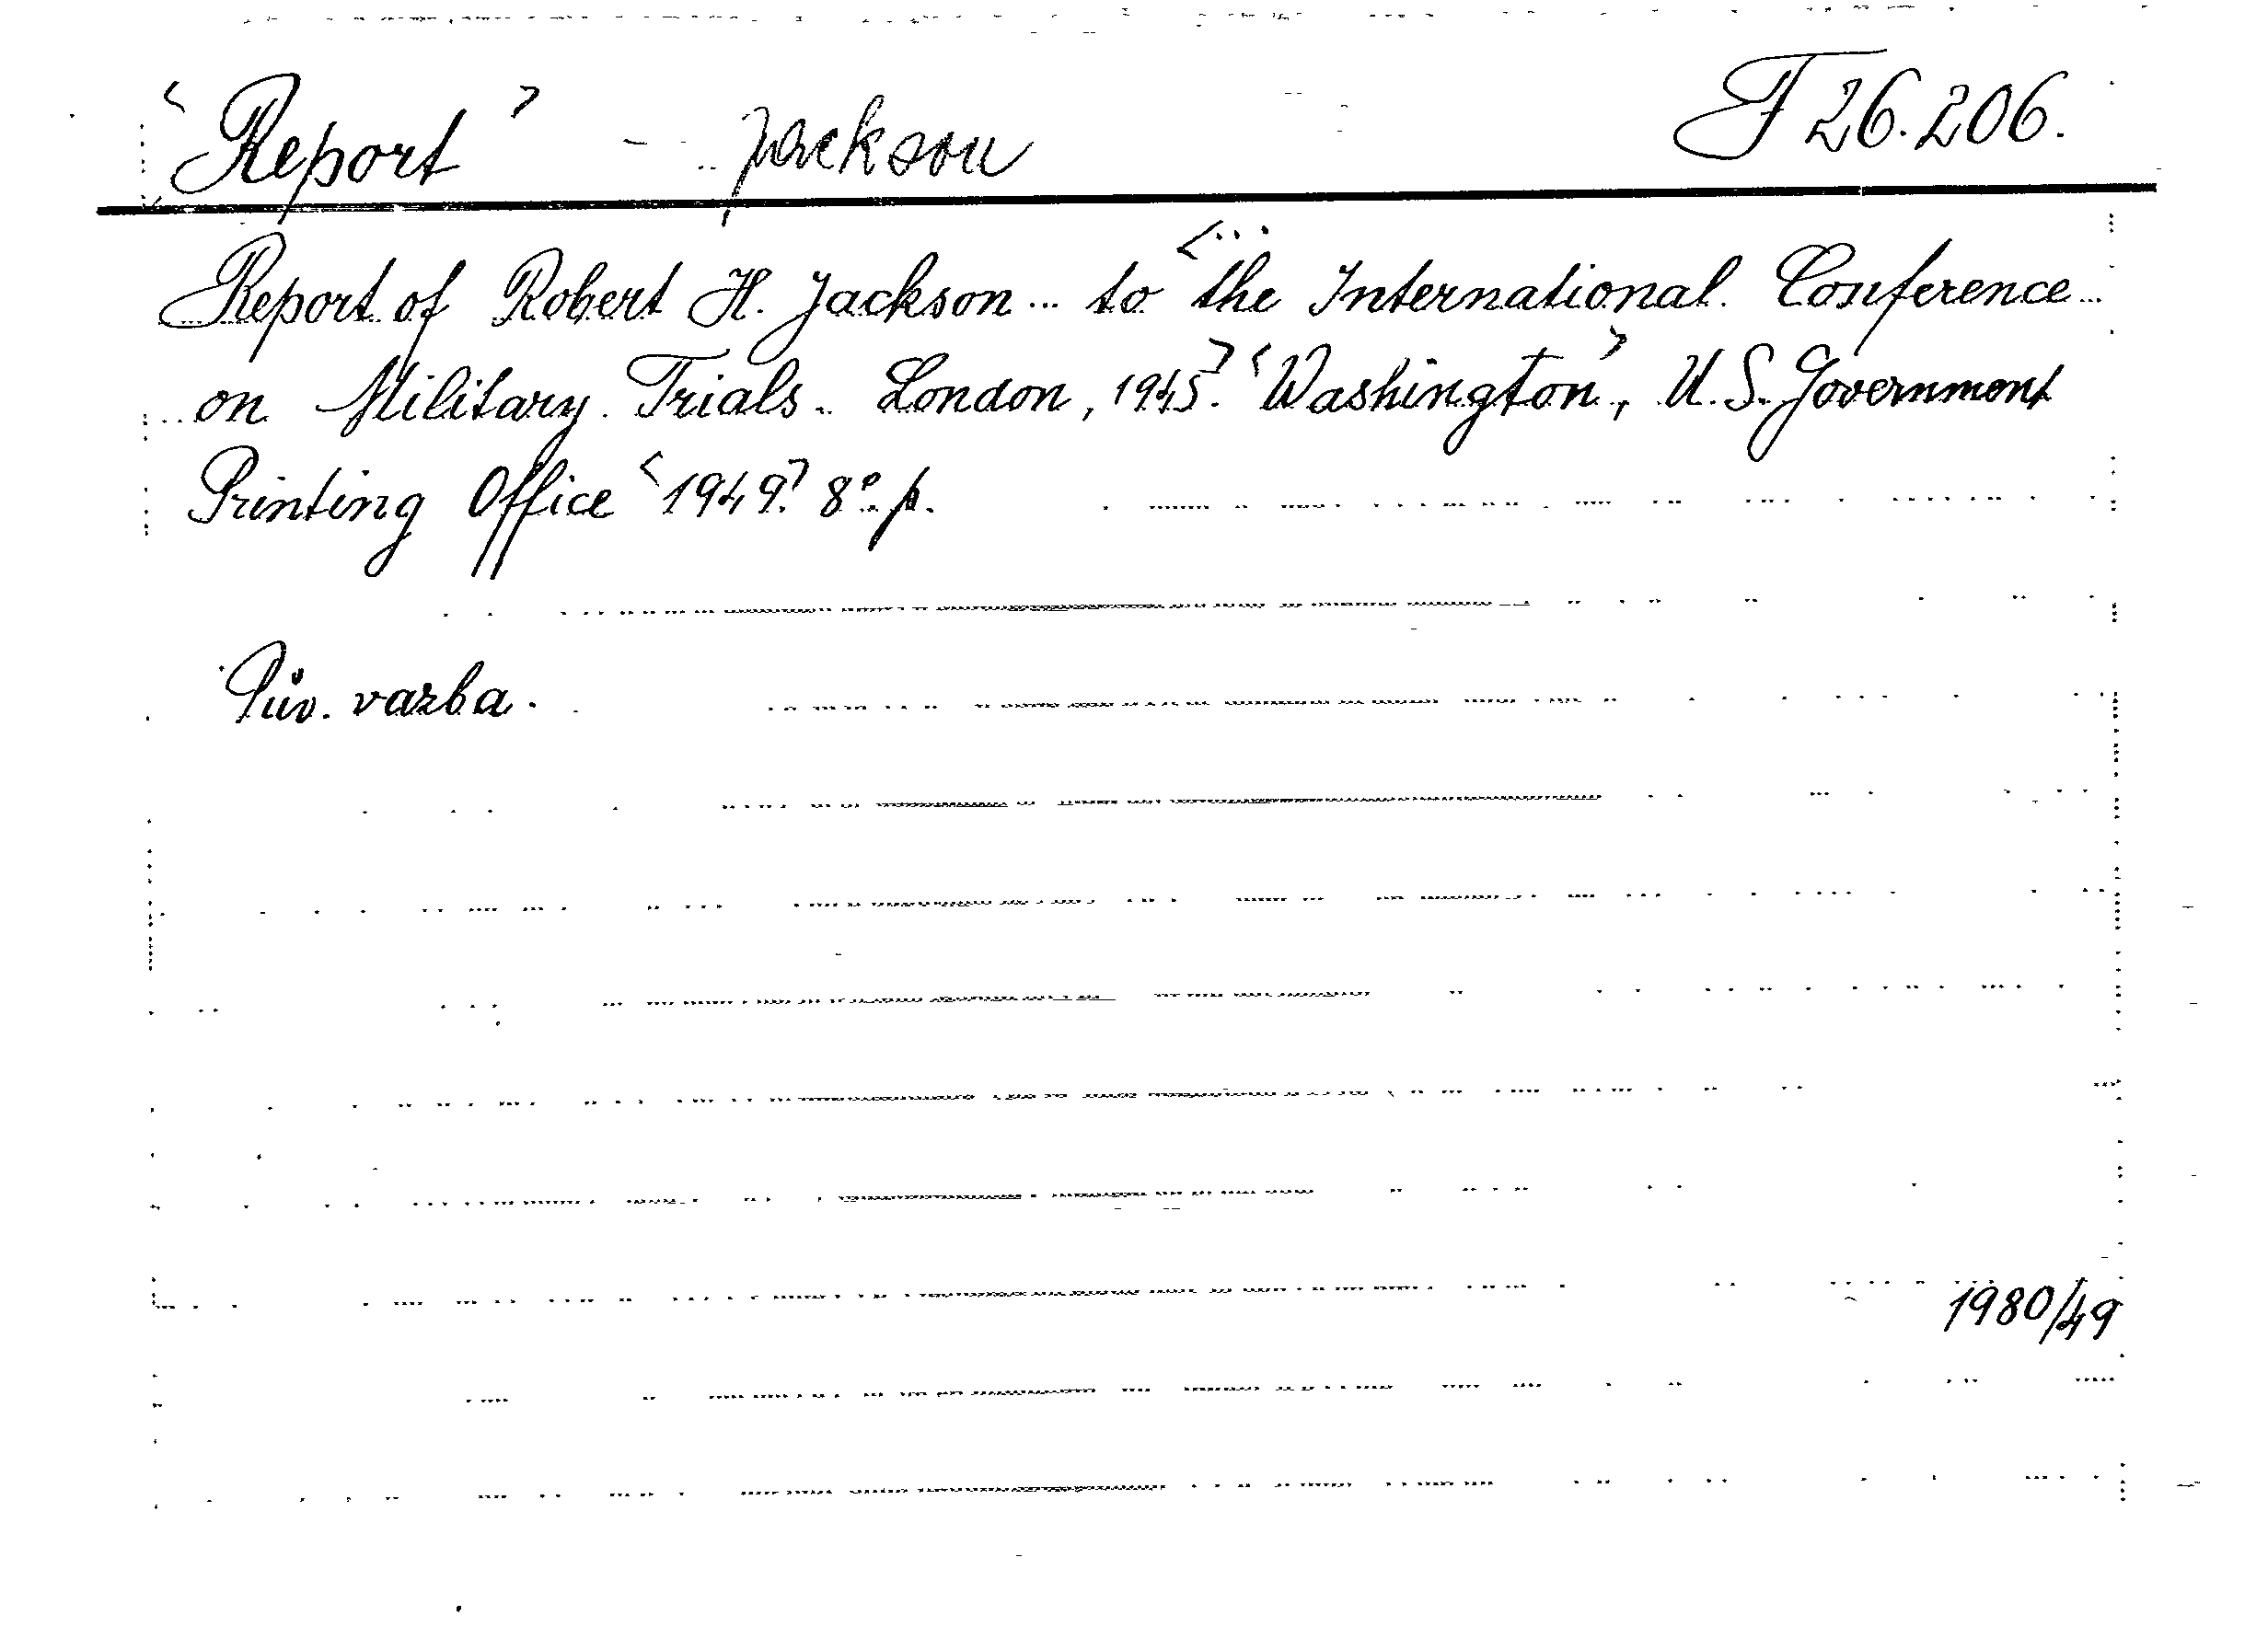 <Report> - Jackson F 26.206.
Report of Robert H. Jackson ... to <... the International Conference
on Military Trials. London, 1945.> <Washington>, U.S. Government
Printing Office <1949.> 8° p.
Pův. vazba.
1980/49